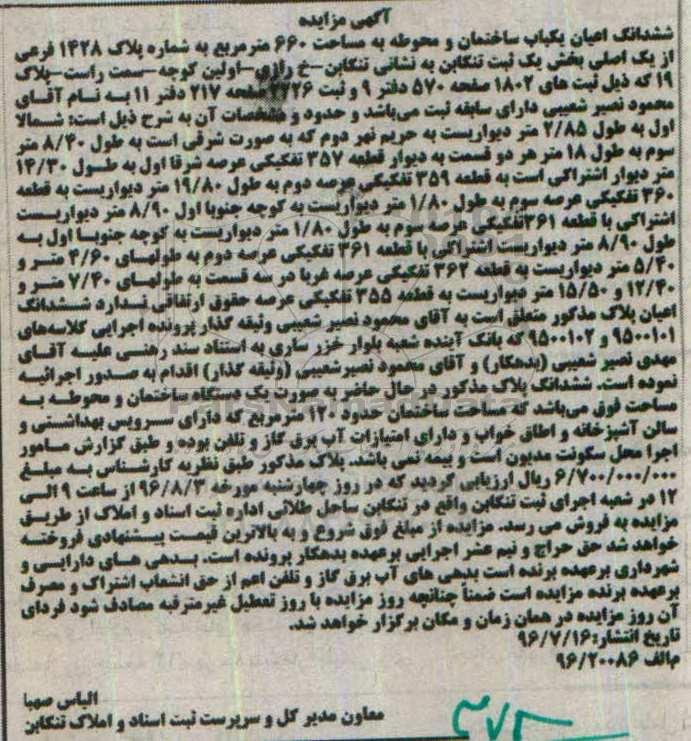 آگهی مزایده
ششدانگ اعیان یکباب ساختمان و محوطه به مساحت ۶۶۰ مترمربع به شماره پلاک ۱۴۲۸ فرعی
از یک اصلی بخش یک ثبت تنکابن به نشانی تنکابن-خ رازی-اولین کوچه-سمت راست-پلاک
۱۹ که ذیل ثبت های ۱۸۰۲ صفحه ۵۷۰ دفتر ۹ و ثبت ۲۲۲۶ صفحه ۲۱۷ دفتر ۱۱ به نام آقای
محمود نصیر شعیبی دارای سابقه ثبت می‌باشد و حدود و مشخصات آن به شرح ذیل است: شمالا
اول به طول ۲/۸۵ متر دیواریست به حریم نهر دوم که به صورت شرقی است به طول ۸/۴۰ متر
سوم به طول ۱۸ متر هر دو قسمت به دیوار قطعه ۳۵۷ تفکیکی عرصه شرقا اول به طول ۱۴/۳۰
متر دیوار اشتراکی است به قطعه ۳۵۹ تفکیکی عرصه دوم به طول ۱۹/۸۰ متر دیواریست به قطعه
۳۶۰ تفکیکی عرصه سوم به طول ۱/۸۰ متر دیواریست به کوچه جنوبا اول ۸/۹۰ متر دیواریست
اشتراکی با قطعه ۳۶۱تفکیکی عرصه سوم به طول ۱/۸۰ متر دیواریست به کوچه جنوبا اول به
طول ۸/۹۰ متر دیواریست اشتراکی با قطعه ۳۶۱ تفکیکی عرصه دوم به طولهای ۴/۶۰ متر و
۵/۴۰ متر دیواریست به قطعه ۳۶۲ تفکیکی عرصه غربا در سه قسمت به طولهای ۷/۴۰ متر و
۱۲/۴۰ و ۱۵/۵۰ متر دیواریست به قطعه ۳۵۵ تفکیکی عرصه حقوق ارتفاقی ندارد ششدانگ
اعیان پلاک مذکور متعلق است به آقای محمود نصیر شعیبی وثیقه گذار پرونده اجرایی کلاسه‌های
۹۵۰۰۱۰۱ و ۹۵۰۰۱۰۲ که بانک آینده شعبه بلوار خزر ساری به استناد سند رهنی علیه آقای
مهدی نصیر شعیبی (بدهکار) و آقای محمود نصیرشعیبی (وثیقه گذار) اقدام به صدور اجرائیه
نموده است. ششدانگ پلاک مذکور در حال حاضر به صورت یک دستگاه ساختمان و محوطه به
مساحت فوق می‌باشد که مساحت ساختمان حدود ۱۲۰ مترمربع که دارای سرویس بهداشتی و
سالن آشپزخانه و اطاق خواب و دارای امتیازات آب برق گاز و تلفن بوده و طبق گزارش مامور
اجرا محل سکونت مدیون است و بیمه نمی باشد. پلاک مذکور طبق نظریه کارشناس به مبلغ
۶/۷۰۰/۰۰۰/۰۰۰ ریال ارزیابی گردید که در روز چهارشنبه مورخه ۹۶/۸/۳ از ساعت ۹ الی
۱۲ در شعبه اجرای ثبت تنکابن واقع در تنکابن ساحل طلائی اداره ثبت اسناد و املاک از طریق
مزایده به فروش می رسد. مزایده از مبلغ فوق شروع و به بالاترین قیمت پیشنهادی فروخته
خواهد شد حق حراج و نیم عشر اجرایی برعهده بدهکار پرونده است. بدهی های دارایی و
شهرداری برعهده برنده است بدهی های آب برق گاز و تلفن اعم از حق انشعاب اشتراک و مصرف
برعهده برنده مزایده است ضمناً چنانچه روز مزایده با روز تعطیل غیرمترقبه مصادف شود فردای
آن روز مزایده در همان زمان و مکان برگزار خواهد شد.
تاریخ انتشار:۹۶/۷/۱۶
م‌الف ۹۶/۲۰۰۸۶
الیاس صهبا
معاون مدیر کل و سرپرست ثبت اسناد و املاک تنکابن